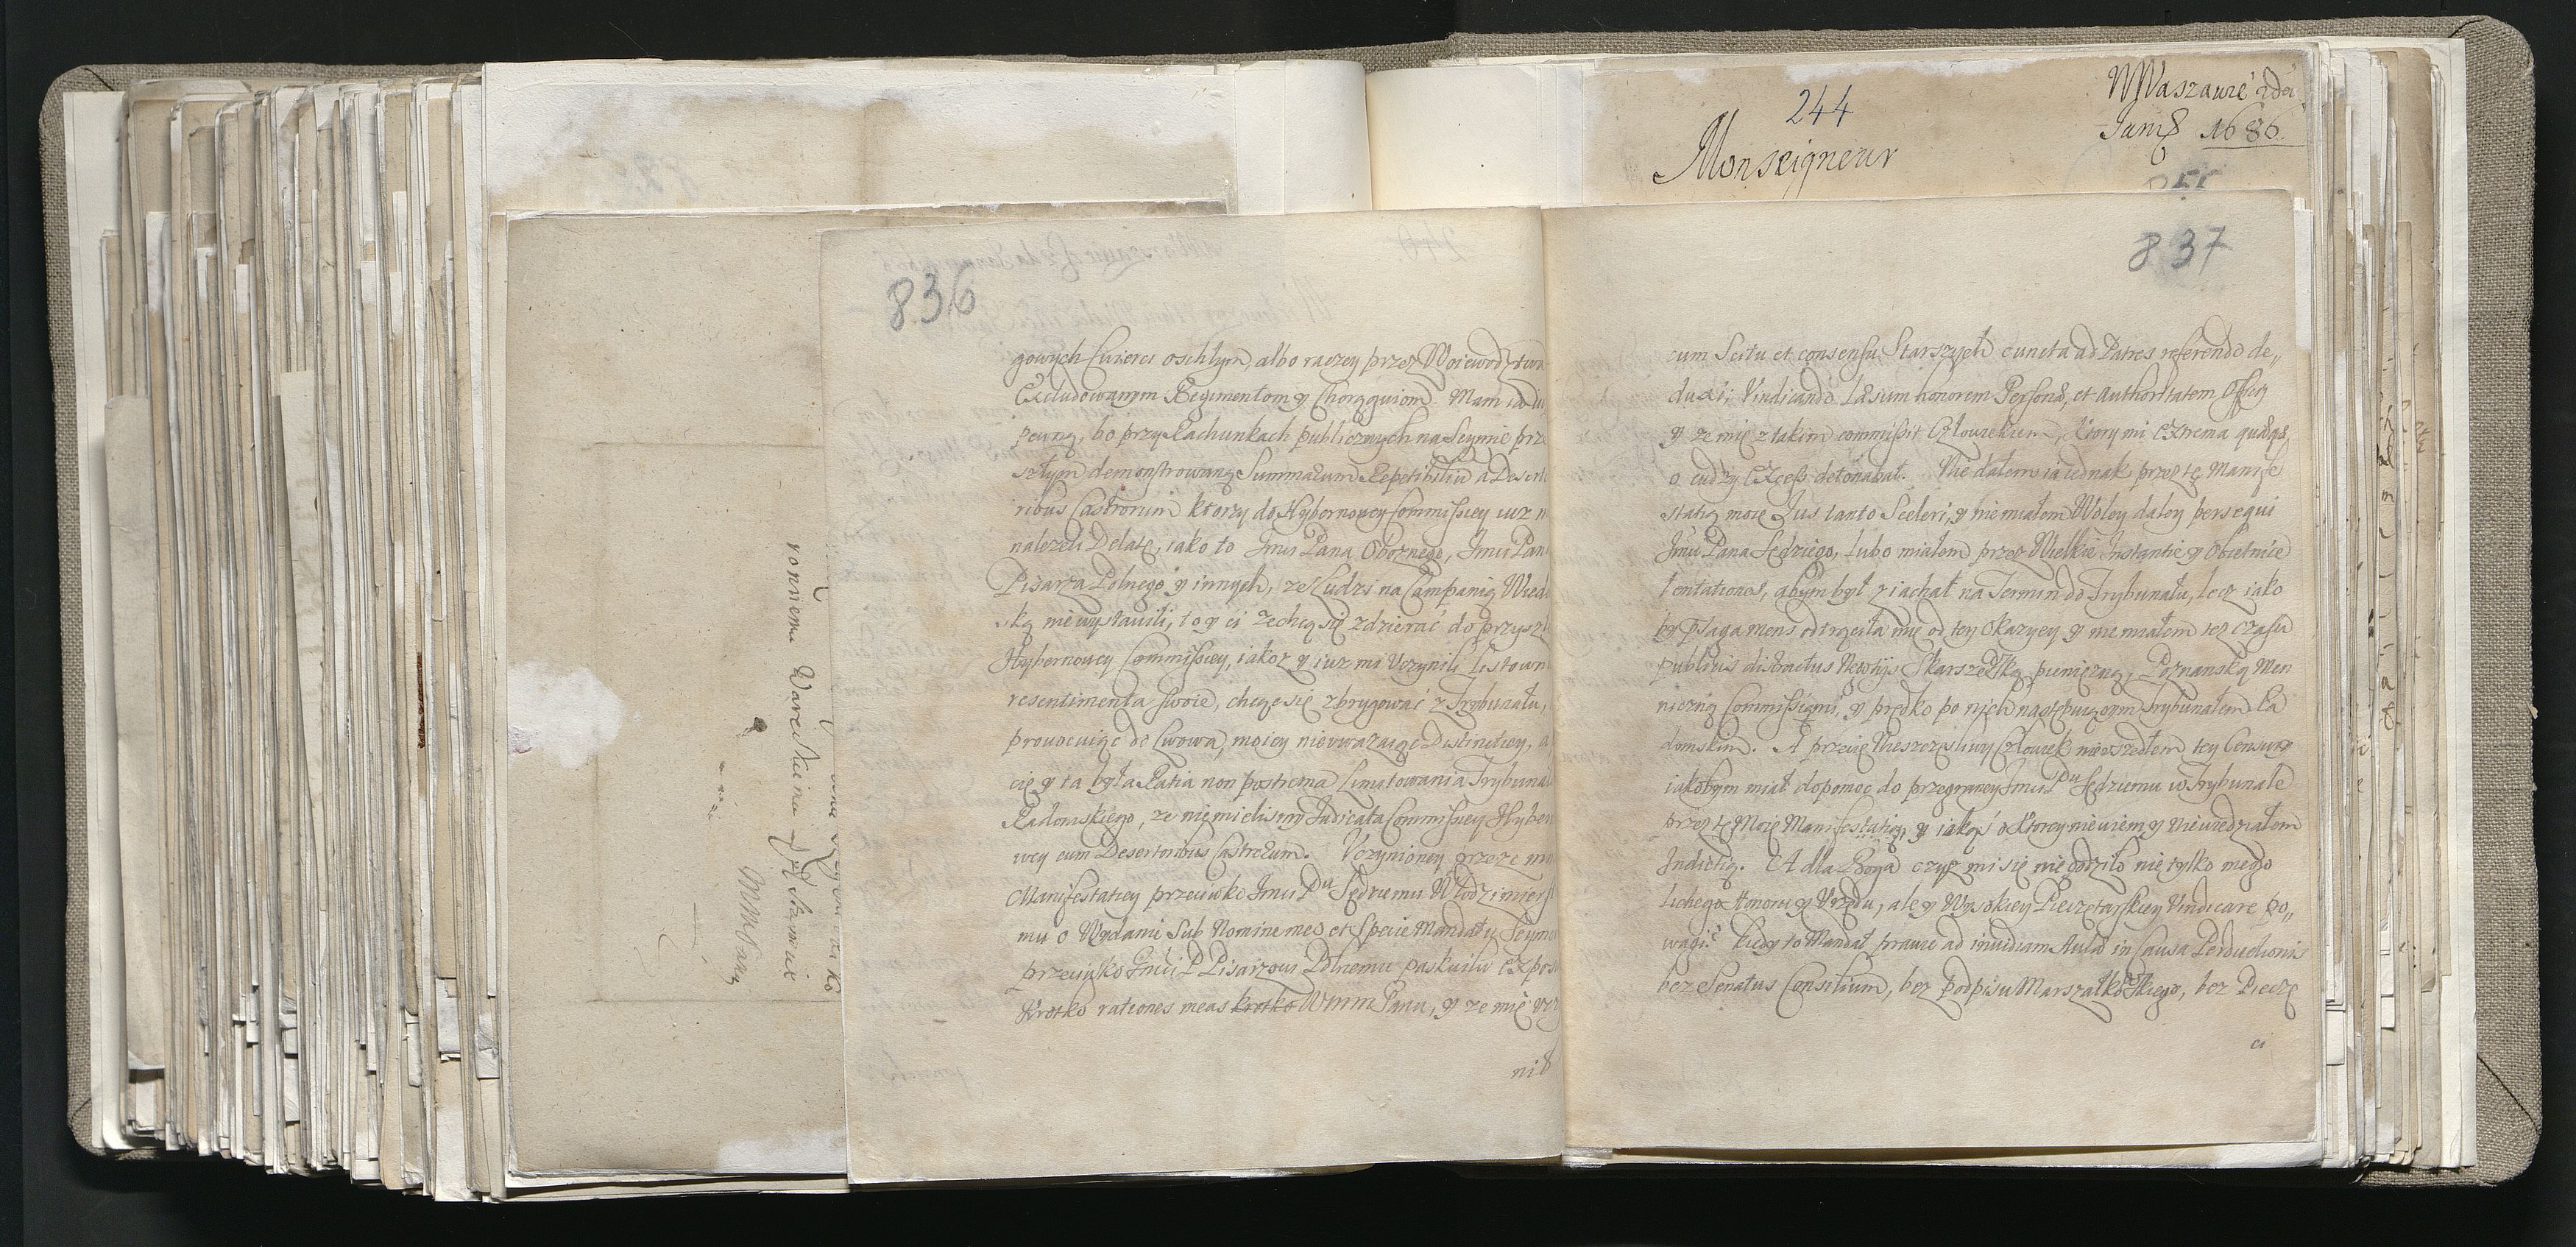 244
Monseigneur
W Warszawie 2da
Janū 1686.
836
gowych Cwierci oschłym albo raczey przez Woiewodztwa
Excludowanym Regimentom y Chorągwiom. Mam
pewną, bo przy Rachunkach publicznych na Seymie prze
szłym demonstrowaną Summarum Repetibiliū a Deserto
ribus Castrorum ktorzy do Hybernowey Commissiey iuz n
nalezeli Delatę, iako to Jmci Pana Oboznego, Jmci Pan
Pisarza Polnego y innych, ze Ludzi na Campanią Wied
ską nie wystawili, to y ci zechcą się zdzierać do przysz
Hybernowey Commissiey, iakoz y iuz mi Uczynili Listown
resentimenta swoie, chcąc się zbrygować z Trybunału,
prouocuiąc do Lwowa, moiey nieuwazaiąc Distinctiey, a
cię y ta była Ratia non postrema Limitowania Trybuna
Radomskiego, ze niemielismy Judicata Commissiey Hyber
wey cum Desertoribus Castrorum. Uczynioney przeze mn
Manifestatiey przeciwko Jmci Pu Sędziemu Włodzimiers
mu o Wydanie Sub Nomine meo et Specie Mandatu Seymo
przeciwko Jmci P Pisarzowi Polnemu paskwilu expo
Krotko rationes meas krotko Wmm Panu, y ze mię
nis
837
cum Scitu et consensu Starszych cuncta ad Patres referendo de,,
duxi; Vindicando Læsum honorem Personæ, et Authoritatem Officij
y ze mię z takim commisit Człowiekiem, ktory mi extrema quæqs,
o cudzy Excess detonabat. Nie dałem ia iednak przez tę Manife
statią moię Jus tanto Sceleri, y nie miałem Woley daley persequi
Jmci Pana Sędziego, lubo miałem przez Wielkie Instantie y Obietnice
tentationes, abym był ziachał na Termin do Trybunału, lecz iako
by præsaga mens odtrąciła mię od tey Okazyey y nie miałem tez czasu
publicis distractus Negotijs Skarszewską pieniezną, Poznanską Men
niczną Commissiami, y prętko po nich następuiącym Trybunałem Ra
domskim. A przecię Nieszczęsliwy Człowiek nieuszedłem tey Censury
iakobym miał dopomoc do przegraney Jmci Pu Sędziemu w Trybunale
przez tę Moię Manifestatią, y iakąs o ktorey niewiem y niewiedziałem
Indictią. A dla Boga czyz mi się nie godziło nie tylko mego
lichego Honoru y Urzędu, ale y Wysokiey Pieczętarskiey Vindicare po,,
wagi? kiedy to Mandat prawie ad inuidiam Aulæ in Causa Perduelionis
bez Senatus Consilium, bez podpisu Marszałkowskiego, bez Pieczę
ci